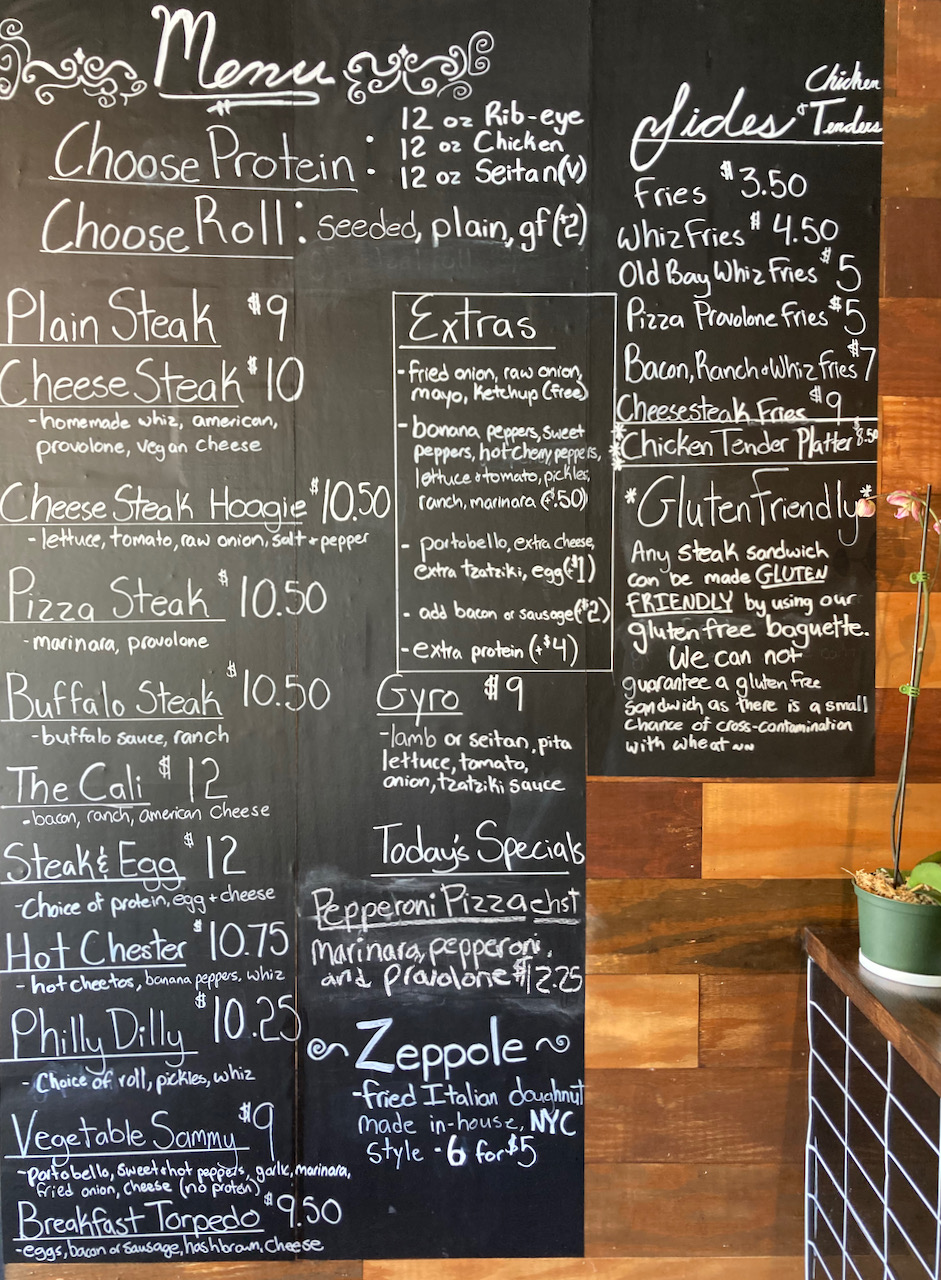 Menu
Choose Protein:
12 oz Rib-eye
12 oz Chicken
12 oz Seitan(v)
Choose Roll: seeded, plain, gf(+2)
Plain Steak $9
Cheese Steak $10
-homemade whiz, american,
provolone, vegan cheese
Cheese Steak Hoagie $10.50
-lettuce, tomato, raw onion, salt + pepper
Pizza Steak $10.50
-marinara, provolone
Buffalo Steak $10.50
-buffalo sauce, ranch
The Cali $12
-bacon, ranch, american cheese
Steak & Egg $12
-Choice of protein, egg + cheese
Hot Chester $10.75
-hot cheetos, banana peppers, whiz
Philly Dilly $10.25
-Choice of roll, pickles, whiz
Vegetable Sammy $9
-portobello, sweet + hot peppers, garlic, marinara,
fried onion, cheese (no protein)
Breakfast Torpedo $9.50
-eggs, bacon or sausage, hashbrown, cheese
Extras
-fried onion, raw onion,
mayo, Ketchup (free)
-banana peppers, sweet
peppers, hot cherry peppers,
lettuce + tomato, pickles,
ranch, marinara (+$.50)
- portobello, extra cheese,
extra tzatziki, egg(+$1)
- add bacon or sausage(+$2)
-extra protein (+$4)
Gyro $9
-lamb or seitan, pita
lettuce, tomato,
onion, tzatziki sauce
Today's Specials
Pepperoni Pizza chst
Marinara, pepperoni,
and provolone $12.25
Zeppole
-fried Italian doughnut
made in-house, NYC
Style - 6 for $5
Sides + Chicken
Tenders
Fries $3.50
Whiz Fries $4.50
Old Bay Whiz Fries $5
Pizza Provolone Fries $5
Bacon, Ranch & Whiz Fries $7
Cheesesteak Fries $9
Chicken Tender Platter $8.50
*Gluten Friendly*
Any steak sandwich
can be made GLUTEN
FRIENDLY by using our
gluten free baguette.
We can not
guarantee a gluten free
sandwich as there is a small
chance of cross-contamination
with wheat ~~